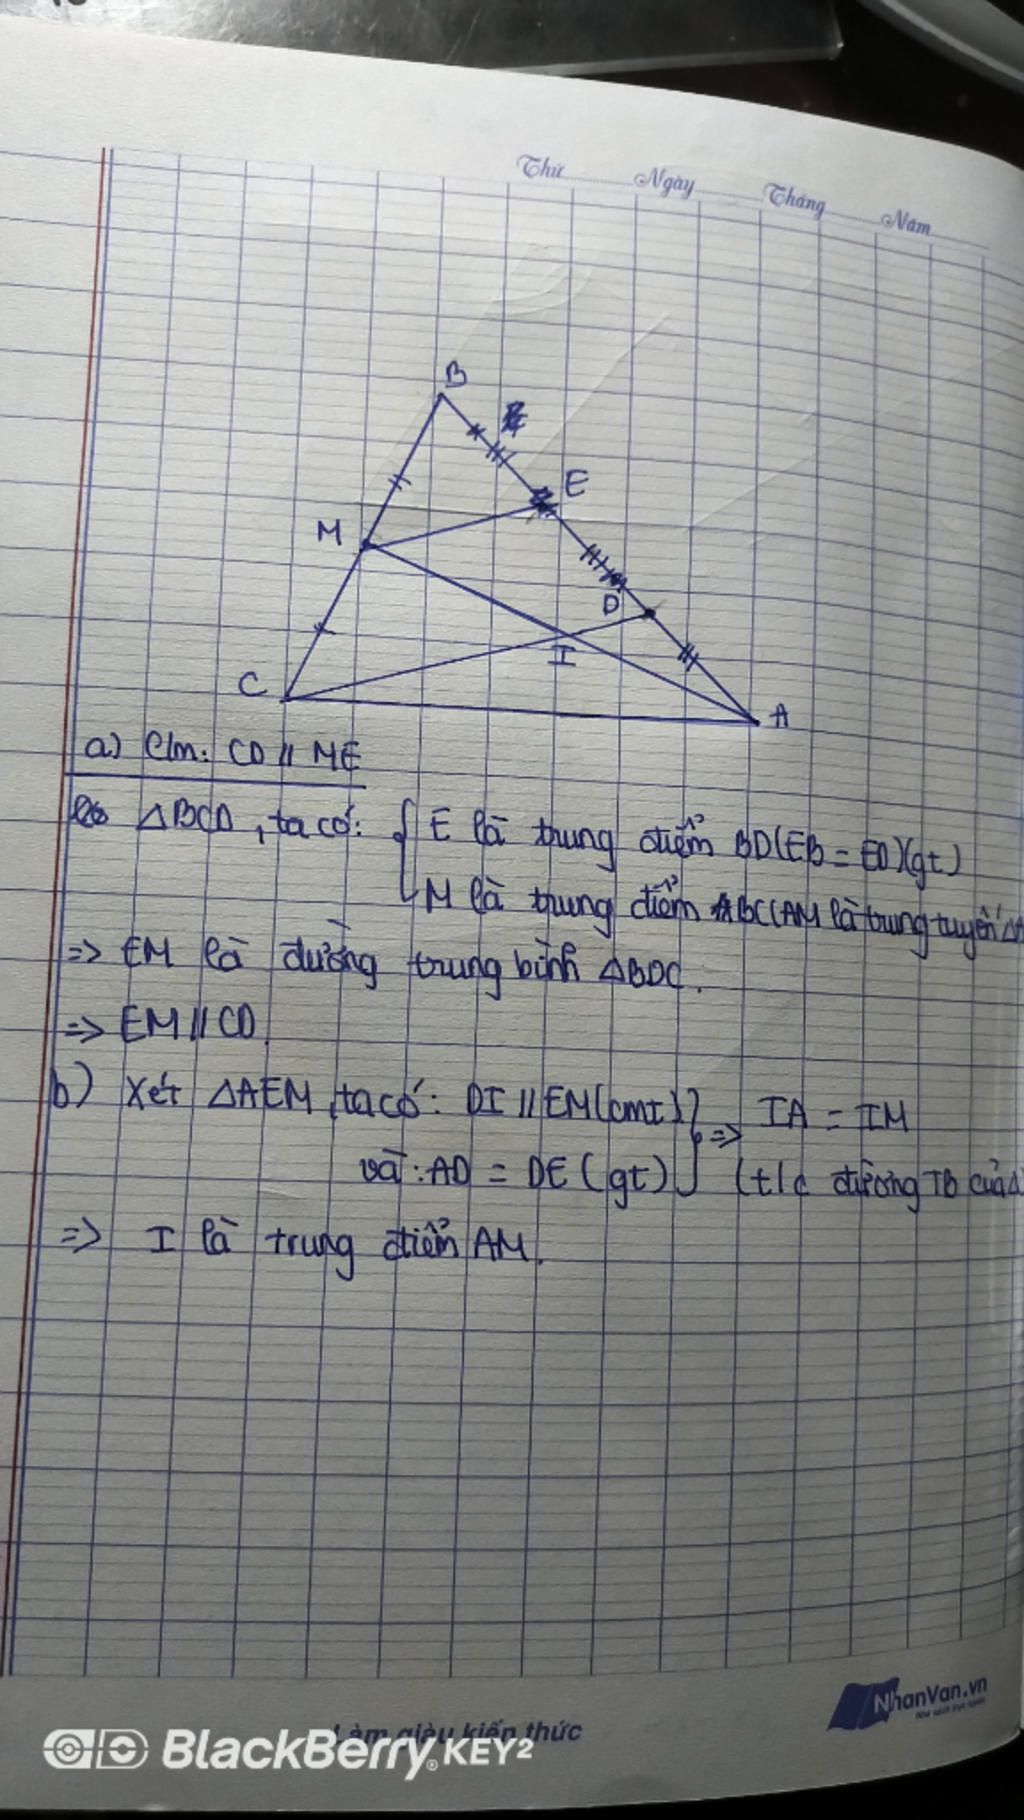 Thứ Ngày Tháng Năm
B
E
M
D
I
C
A
a) Clm: CD // ME
△BCD, ta có: { E là trung điểm BD(EB = ED)(gt)
M là trung điểm BC(AM là trung tuyến △
=> EM là đường trung bình △BDC.
=> EM // CD.
b) Xét △AEM, ta có: DI // EM (cmt) } => IA = IM
và: AD = DE (gt) (t/c đường TB của △
=> I là trung điểm AM.
NhanVan.vn
Làm giàu kiến thức
BlackBerry KEY2